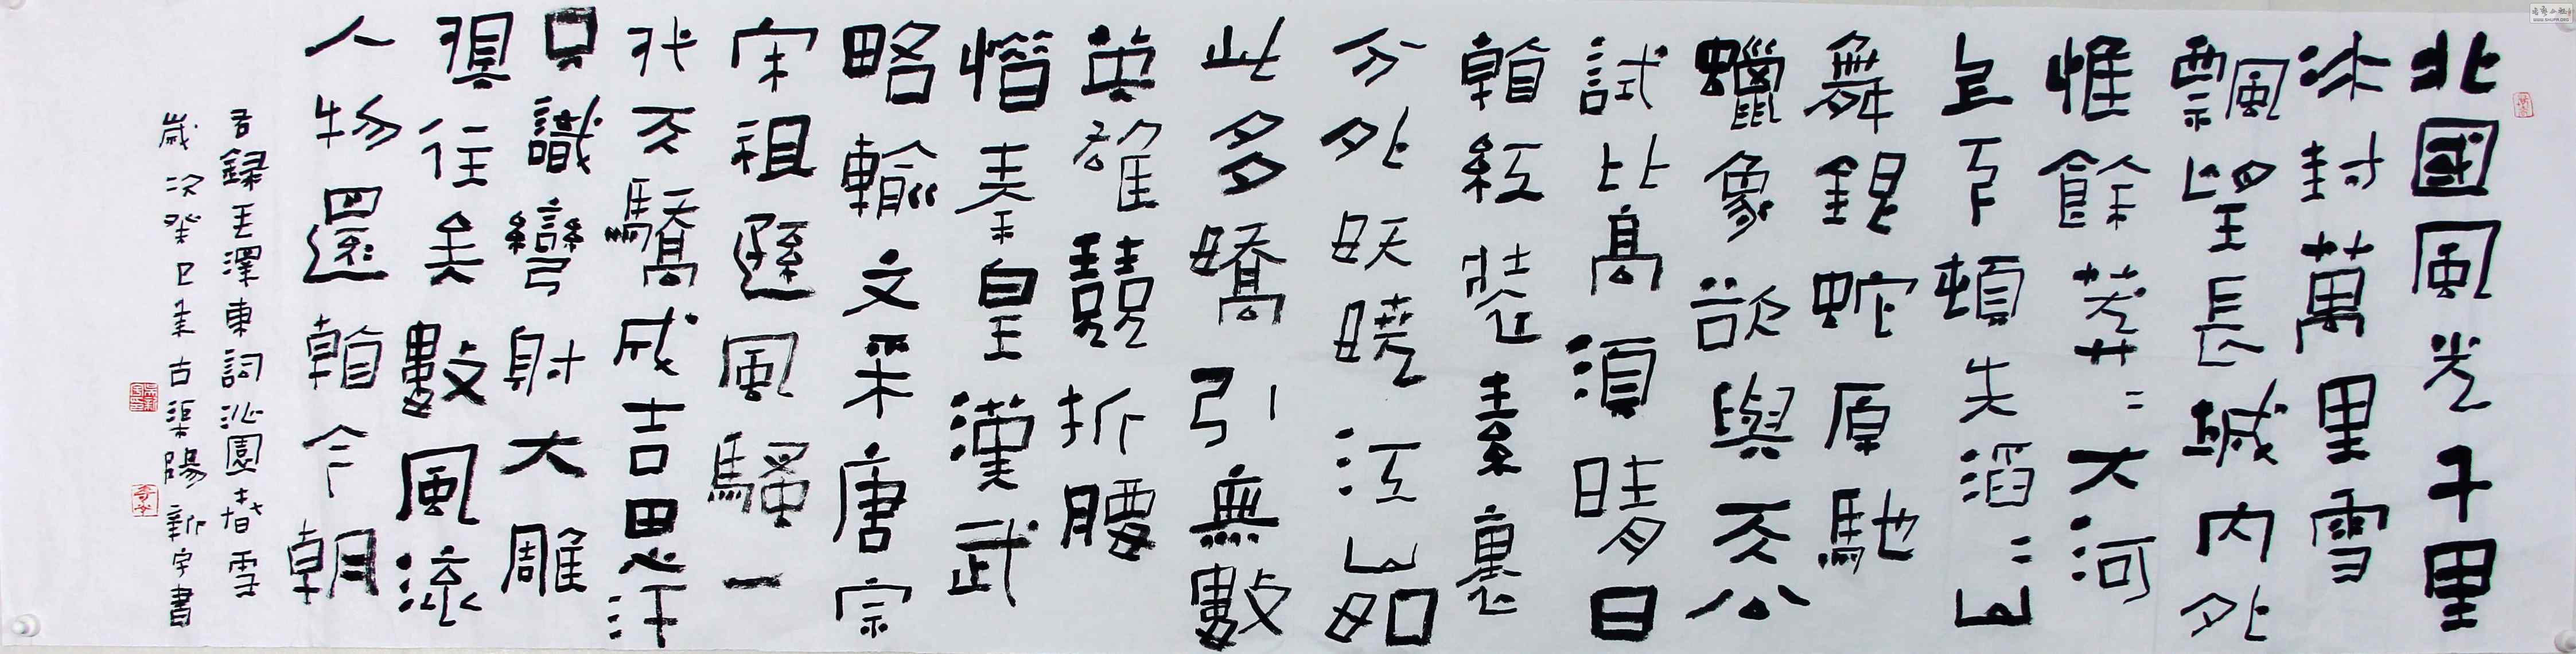 北國風光千里
冰封萬里雪
飄望長城內外
惟餘莽〻大河
上下頓失滔〻山
舞銀蛇原馳
蠟象欲與天公
試比高須晴日
看紅裝素裹
分外妖嬈江山如
此多嬌引無數
英雄競折腰
惜秦皇漢武
略輸文采唐宗
宋祖遜風騷一
代天驕成吉思汗
只識彎弓射大雕
俱往矣數風流
人物還看今朝
右録毛澤東詞沁園春雪
歲次癸巳年古渠陽新宇書